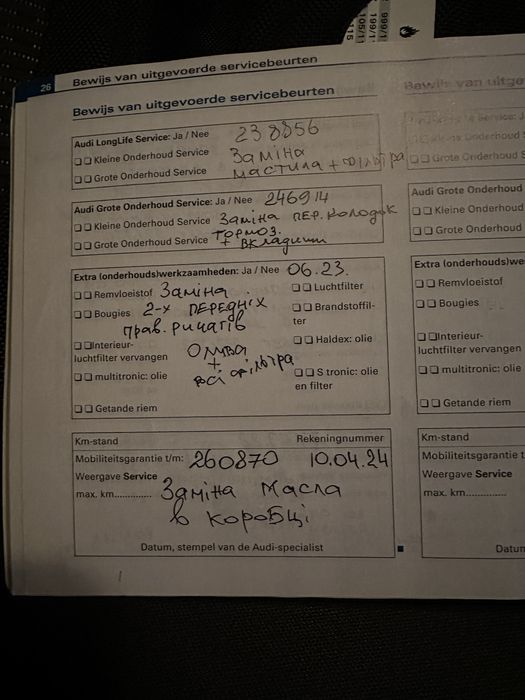 999/1
199/1
105/11
115
26 Bewijs van uitgevoerde servicebeurten
Bewijs van uitgevoerde servicebeurten
Audi LongLife Service: Ja / Nee 238856
Kleine Onderhoud Service Заміна
Grote Onderhoud Service мастила + фільтра
Audi Grote Onderhoud Service: Ja / Nee 246914
Kleine Onderhoud Service Заміна пер. колодок
Grote Onderhoud Service тормоз.
+ вкладиши
Extra (onderhouds)werkzaamheden: Ja / Nee 06.23.
Remvloeistof Заміна Luchtfilter
Bougies 2-х передніх Brandstoffil-
ter
прав. ричагів
Interieur-
luchtfilter vervangen Олива Haldex: olie
+
multitronic: olie всі фільтра S tronic: olie
en filter
Getande riem
Km-stand Rekeningnummer
Mobiliteitsgarantie t/m: 260870 10.04.24
Weergave Service
max. km.............. Заміна масла
в коробці
Datum, stempel van de Audi-specialist
Bewijs van uitge
Grote Onderhoud S
Audi Grote Onderhoud
Kleine Onderhoud
Grote Onderhoud
Extra (onderhouds)we
Remvloeistof
Bougies
Interieur-
luchtfilter vervangen
multitronic: olie
Getande riem
Km-stand
Mobiliteitsgarantie t
Weergave Service
max. km..............
Datum